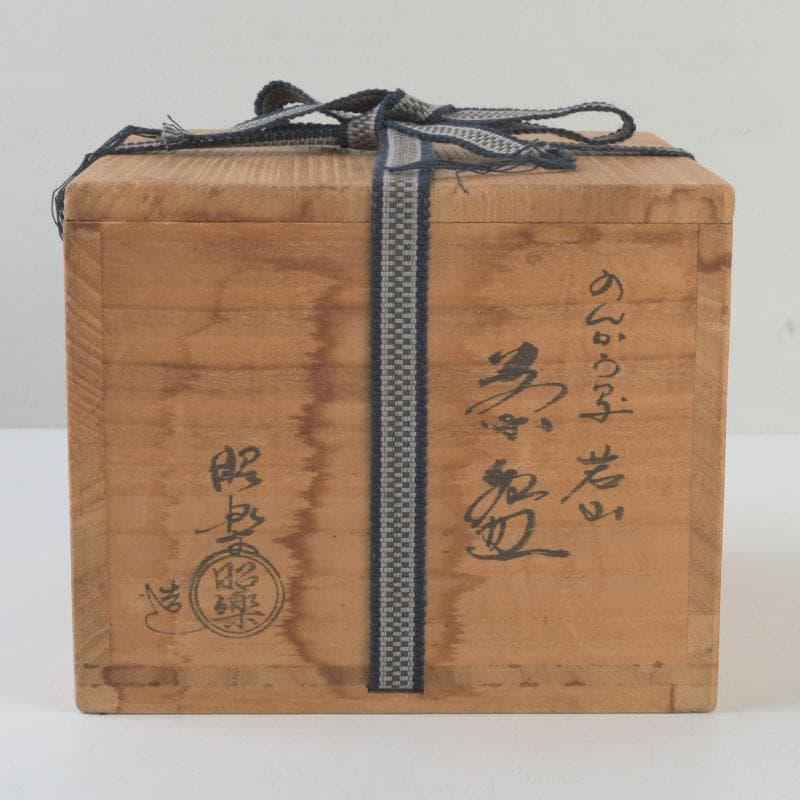 のんかう写 若山
茶盌
昭楽
昭樂
造